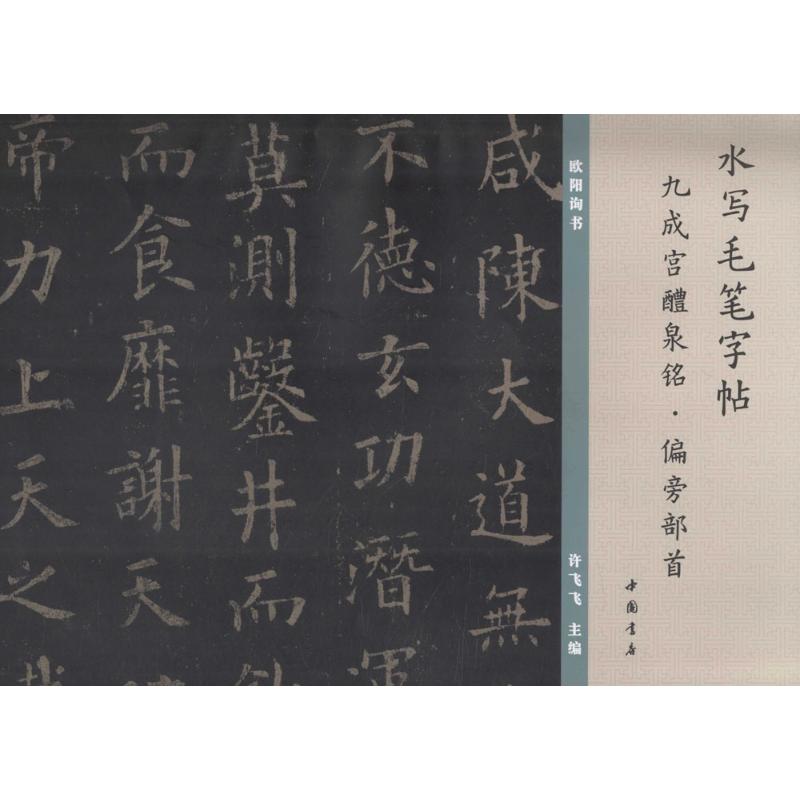 水写毛笔字帖
九成宫醴泉铭·偏旁部首
中国书店
欧阳询书
许飞飞 主编
咸陳大道無
不德玄功潛運
莫測鑿井而飲
而食靡謝天
帝力上天之